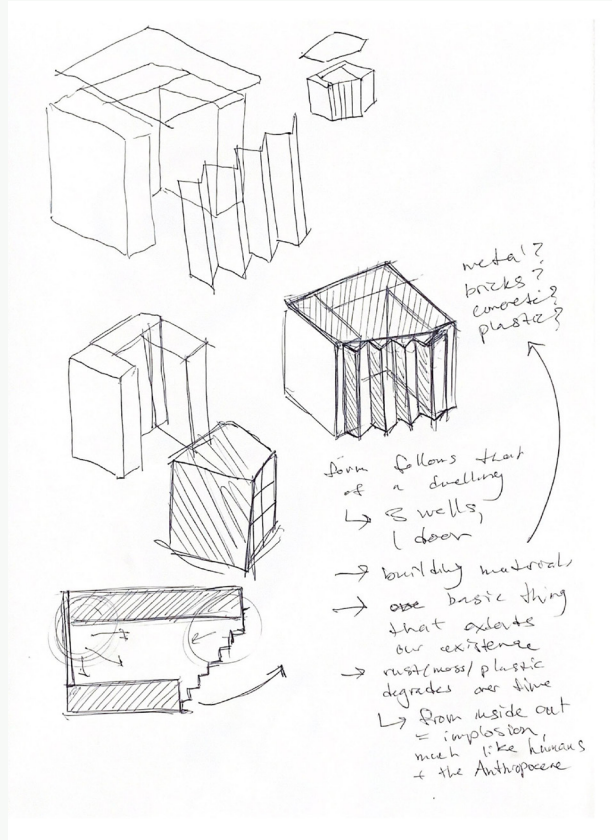 metal?
bricks?
concrete?
plastic?
form follows that
of a dwelling
↳ 3 walls,
1 door
→ building materials
→ basic thing
that
our existence
→ rust/moss/plastic
degrades over time
↳ from inside out
= implosion,
much like humans
+ the Anthropocene